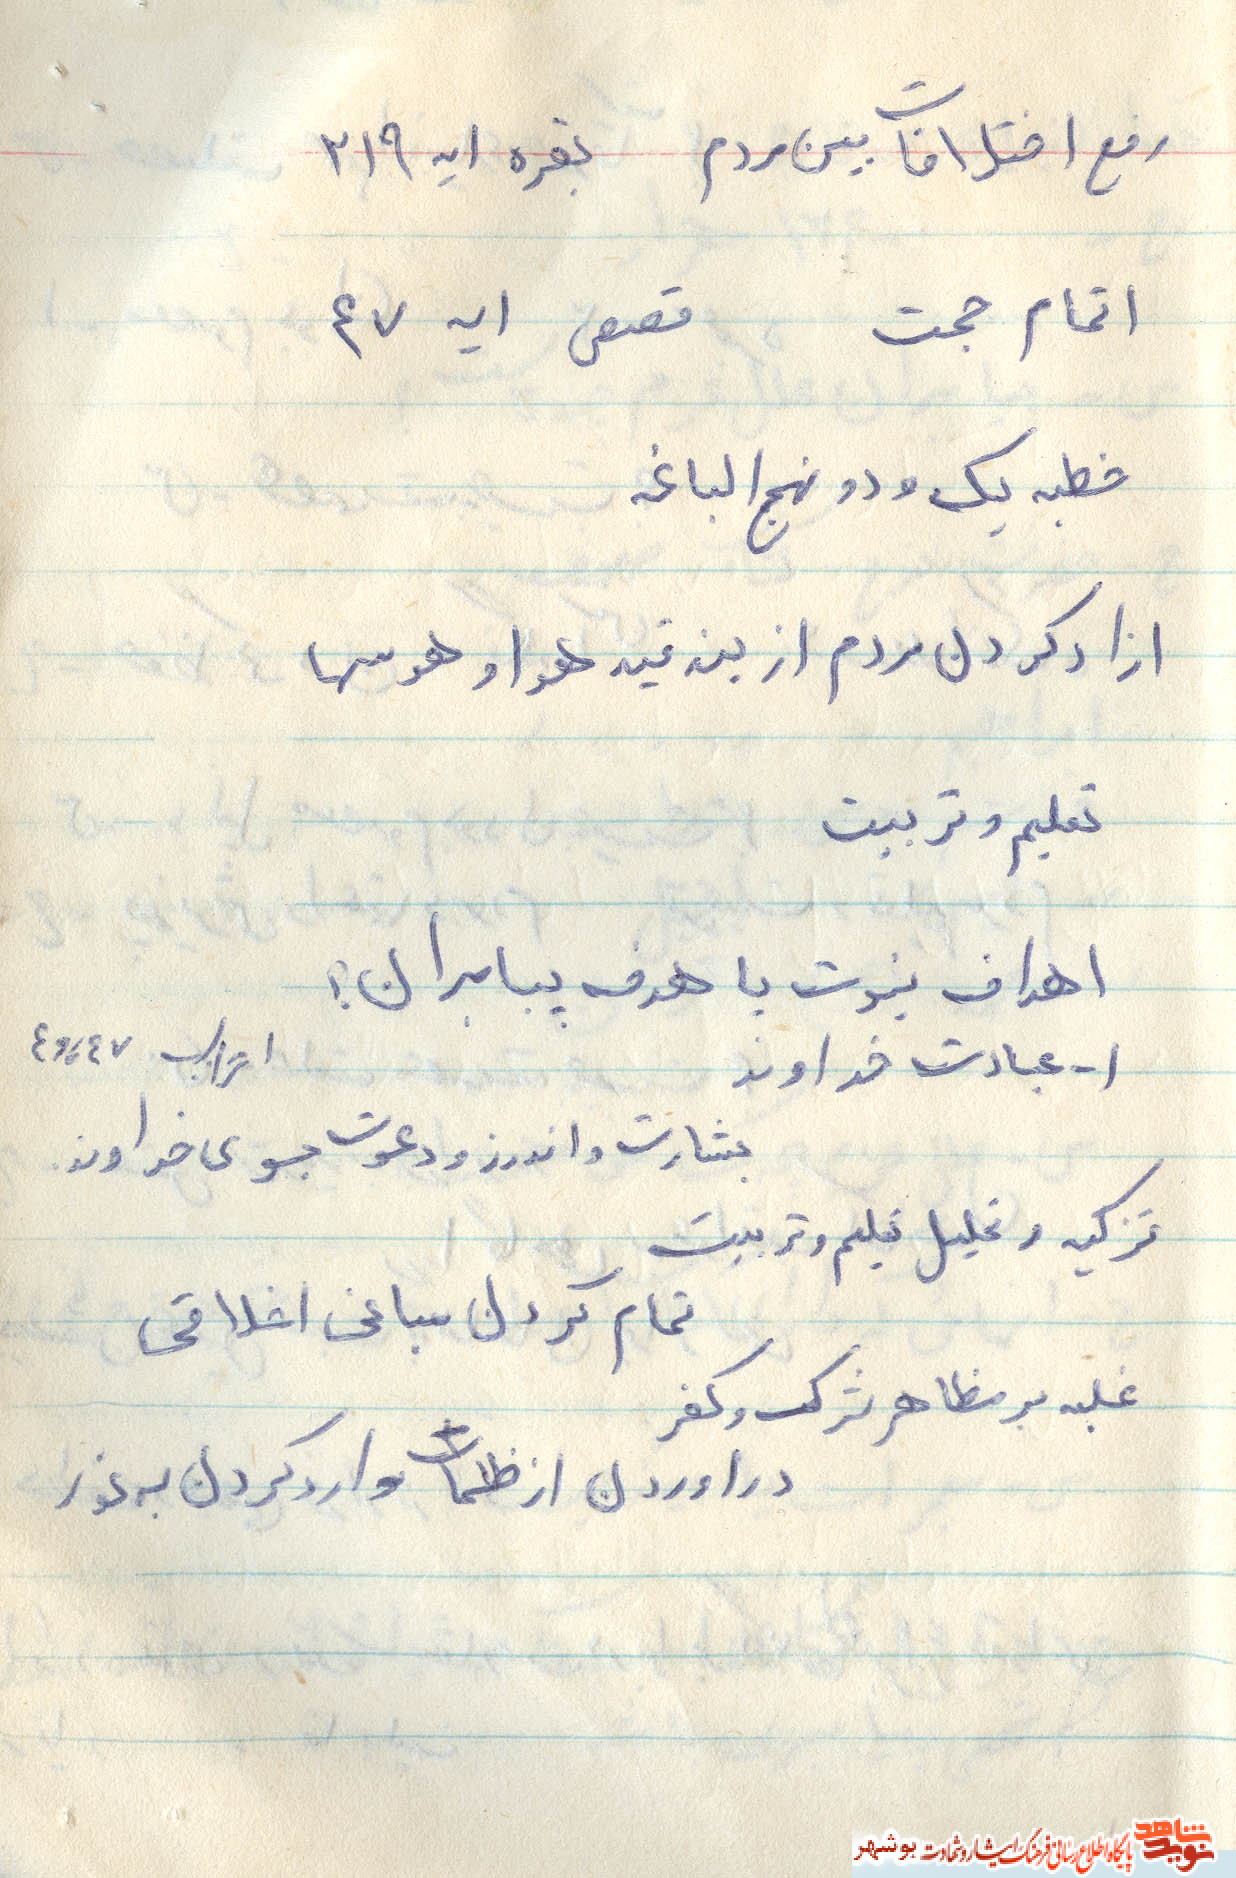 رفع اختلافات بین مردم بقره ایه ۲۱۹
اتمام حجت قصص ایه ۴۷
خطبه یک و دو نهج الباغه
ازاد کردن مردم از بند قید هوا و هوسها
تعلیم و تربیت
اهداف نبوت یا هدف پیامبران؟
۱- عبادت خداوند احزاب ۴۷
بشارت و اندرز و دعوت بسوی خداوند.
تزکیه و تعلیم و تربیت
تمام کردن مبانی اخلاقی
غلبه بر مظاهر شرک و کفر
دراوردن از ظلمات وارد کردن به نور
نوید شاهد
پایگاه اطلاع رسانی فرهنگ ایثار و شهادت بوشهر